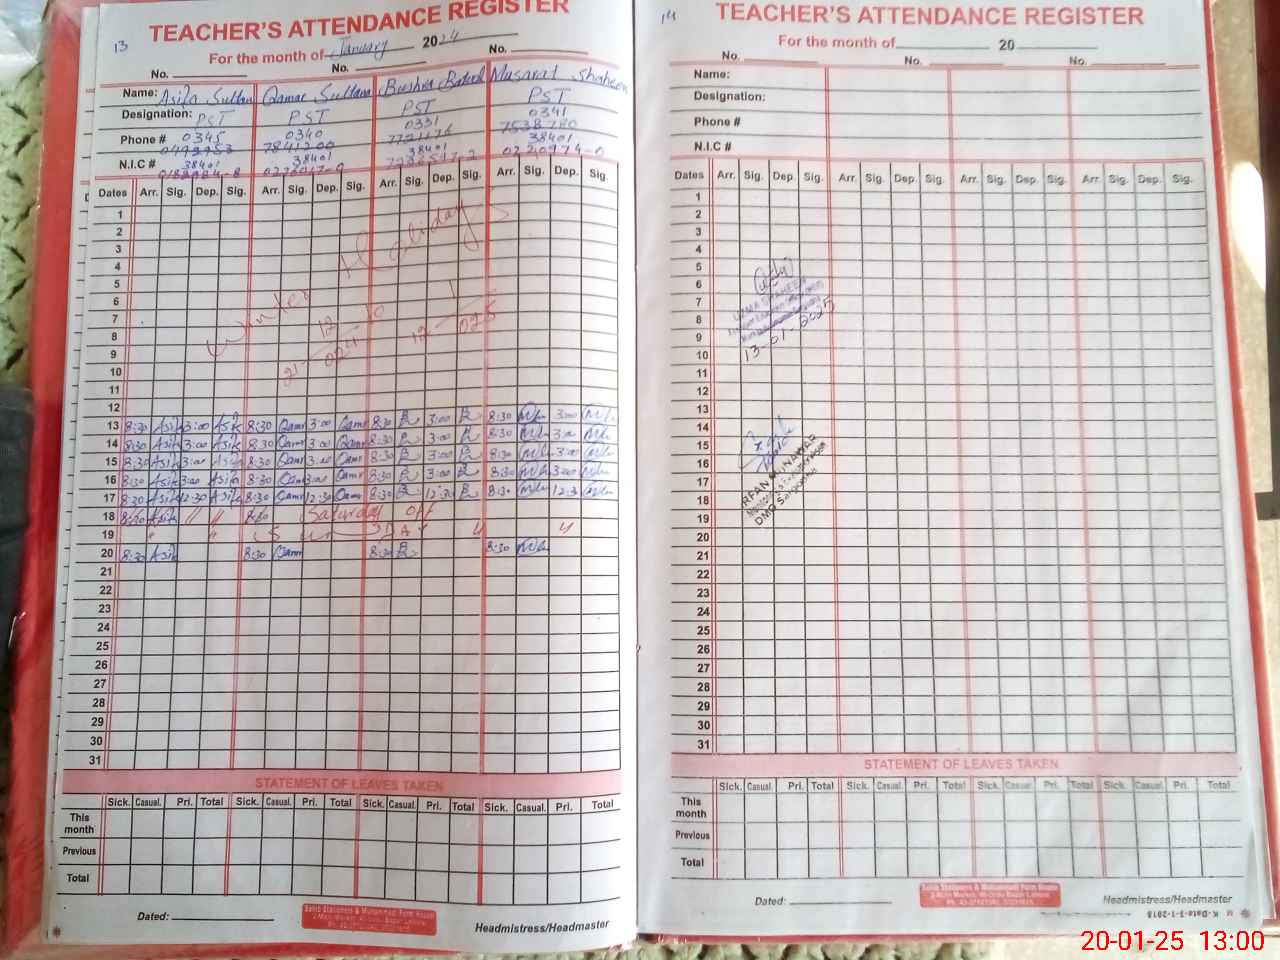 13
TEACHER'S ATTENDANCE REGISTER
For the month of January 2024
No. No. No.
Name: Asifa Sultan Qamar Sultana Bushra Batool Musarat Shaheen
Designation: PST PST PST PST
Phone # 0345 0340 0331 0341
7841200 7538780
N.I.C # 38401 38401 38401 38401
Dates Arr. Sig. Dep. Sig. Arr. Sig. Dep. Sig. Arr. Sig. Dep. Sig. Arr. Sig. Dep. Sig.
1
2
3
4
5
6
7
8
9
10
11
12
Winter Holiday
13 8:30 Asifa 3:00 Asifa 8:30 Qamr 3:00 Qamr 8:30 3:00 8:30 3:00
14 8:30 Asifa 3:00 Asifa 8:30 Qamr 3:00 Qamr 8:30 3:00 8:30 3:00
15 8:30 Asifa 3:00 Asifa 8:30 Qamr 3:00 Qamr 8:30 3:00 8:30 3:00
16 8:30 Asifa 3:00 Asifa 8:30 Qamr 3:00 Qamr 8:30 3:00 8:30 3:00
17 8:30 Asifa 12:30 Asifa 8:30 Qamr 12:30 Qamr 8:30 12:30 8:30 12:30
18 8:30 Asifa 8:30 Saturday off
19
20 8:30 Asifa 8:30 Qamr 8:30 8:30
21
22
23
24
25
26
27
28
29
30
31
STATEMENT OF LEAVES TAKEN
Sick. Casual. Pri. Total Sick. Casual. Pri. Total Sick. Casual. Pri. Total Sick. Casual. Pri. Total
This month
Previous
Total
Dated:
Headmistress/Headmaster
14
TEACHER'S ATTENDANCE REGISTER
For the month of 20
No. No. No.
Name:
Designation:
Phone #
N.I.C #
Dates Arr. Sig. Dep. Sig. Arr. Sig. Dep. Sig. Arr. Sig. Dep. Sig. Arr. Sig. Dep. Sig.
1
2
3
4
5
6
7
8
9
10
11
12
13
14
15
16
17
18
19
20
21
22
23
24
25
26
27
28
29
30
31
13-01-2025
IRFAN MUNAWAR
STATEMENT OF LEAVES TAKEN
Sick. Casual. Pri. Total Sick. Casual. Pri. Total Sick. Casual. Pri. Total Sick. Casual. Pri. Total
This month
Previous
Total
Dated:
Headmistress/Headmaster
20-01-25 13:00